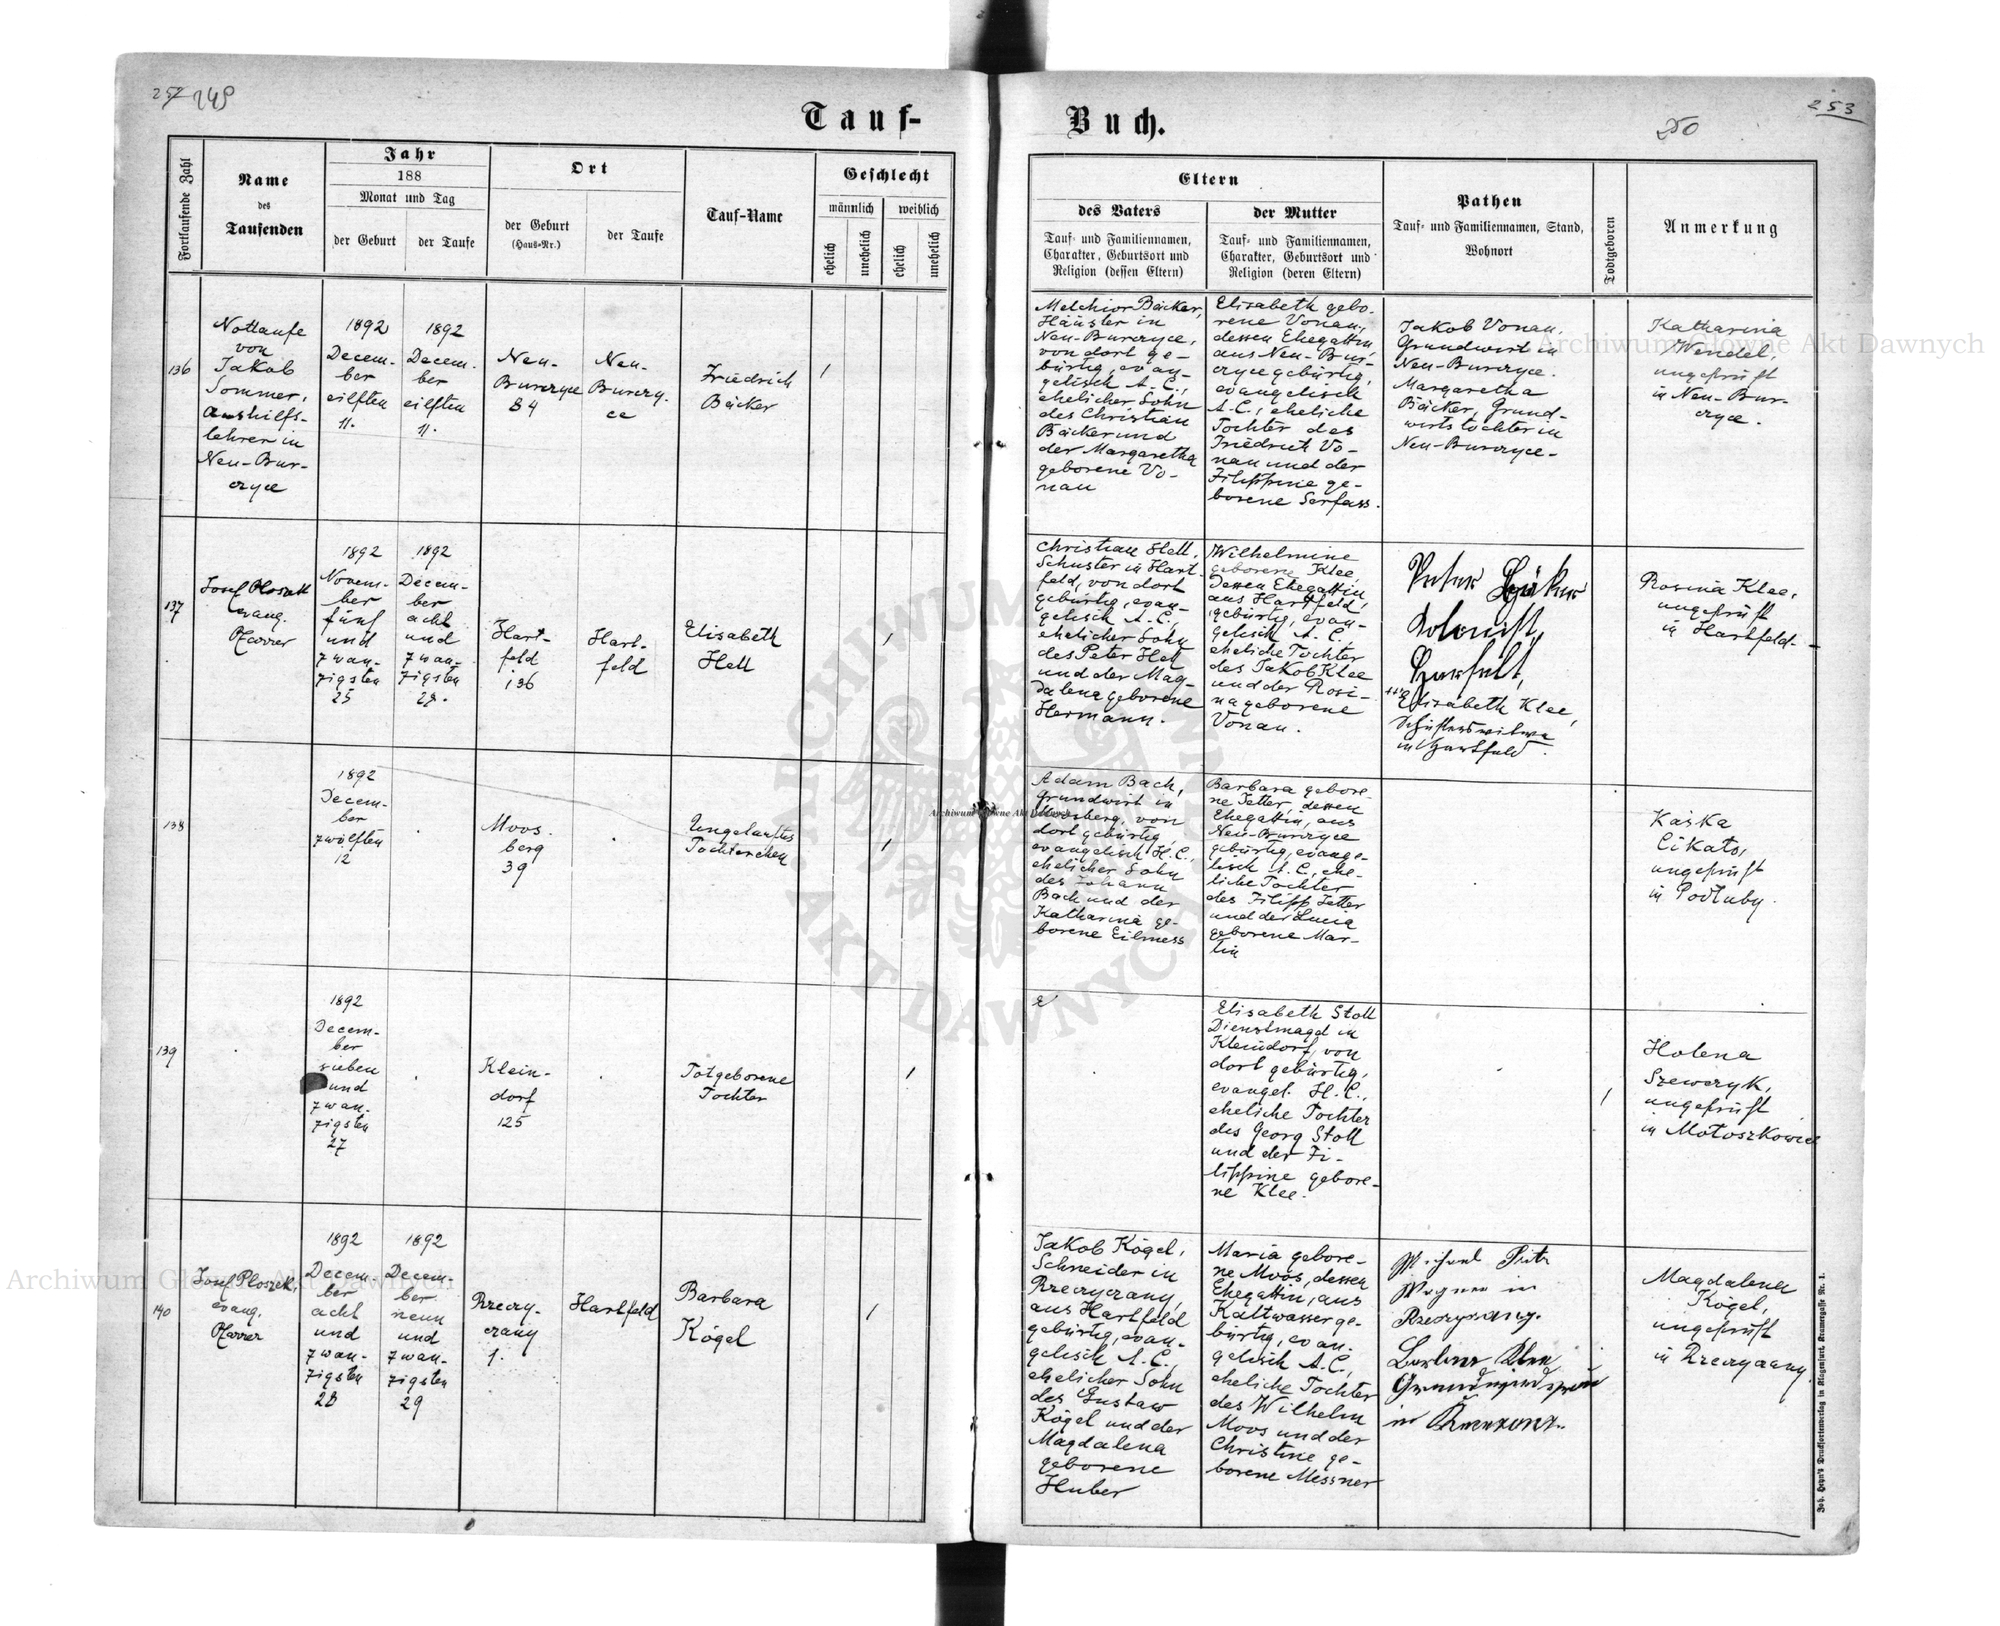 257 249
Tauf-
Buch.
250
253
Fortlaufende Zahl
Name
des
Taufenden
Jahr
188
Monat und Tag
der Geburt
der Taufe
Ort
der Geburt
(Haus-Nr.)
der Taufe
Tauf-Name
Geschlecht
männlich
weiblich
ehelich
unehelich
ehelich
unehelich
Eltern
des Vaters
Tauf- und Familiennamen,
Charakter, Geburtsort und
Religion (dessen Eltern)
der Mutter
Tauf- und Familiennamen,
Charakter, Geburtsort und
Religion (deren Eltern)
Pathen
Tauf- und Familiennamen, Stand,
Wohnort
Todtgeboren
Anmerkung
136
Nottaufe
von
Jakob
Sommer,
Aushilfs-
lehrer in
Neu-Bur-
czyce
1892
Decem-
ber
eilften
11.
1892
Decem-
ber
eilften
11.
Neu-
Burczyce
84
Neu-
Burczy-
ce
Friedrich
Bäcker
1
Melchior Bäcker,
Häusler in
Neu-Burczyce,
von dort ge-
bürtig, evan-
gelisch A. C.,
ehelicher Sohn
des Christian
Bäcker und
der Margaretha
geborene Vo-
nau
Elisabeth gebo-
rene Vonau,
dessen Ehegattin
aus Neu-Bur-
czyce gebürtig,
evangelisch
A. C., eheliche
Tochter des
Friedrich Vo-
nau und der
Filippine ge-
borene Serfass.
Jakob Vonau,
Grundwirt in
Neu-Burczyce.
Margaretha
Bäcker, Grund-
wirtstochter in
Neu-Burczyce-
Katharina
Wendel,
ungeprüft
in Neu-Bur-
czyce.
137
Josef Ploszek
evang.
Pfarrer
1892
Novem-
ber
fünf
und
zwan-
zigsten
25
1892
Decem-
ber
acht
und
zwan-
zigsten
28.
Hart-
feld
136
Hart-
feld
Elisabeth
Hell
1
Christian Hell,
Schuster in Hart-
feld, von dort
gebürtig, evan-
gelisch A. C.,
ehelicher Sohn
des Peter Hell
und der Mag-
dalena geborene
Hermann.
Wilhelmine
geborene Klee,
dessen Ehegattin,
aus Hartfeld,
gebürtig, evan-
gelisch A. C.,
eheliche Tochter
des Jakob Klee
und der Rosi-
na geborene
Vonau.
Peter
Kolonist,
Elisabeth Klee,
Schusterswitwe
in Hartfeld.
Rosina Klee,
ungeprüft
in Hartfeld.-
138
1892
Decem-
ber
zwölften
12
Moos-
berg
39
Ungetauftes
Töchterchen
1
Adam Bach,
Grundwirt in
Moosberg, von
dort gebürtig,
evangelisch H. C.,
ehelicher Sohn
des Johann
Bach und der
Katharina ge-
borene Eilmess
Barbara gebore-
ne Jetter, dessen
Ehegattin, aus
Neu-Burczyce
gebürtig, evange-
lisch A. C., ehe-
liche Tochter
des Filipp Jetter
und der Lucia
geborene Mar-
tin
Kaśka
Cikało,
ungeprüft
in Podłuby.
139
1892
Decem-
ber
sieben
und
zwan-
zigsten
27
Klein-
dorf
125
Totgeborene
Tochter
1
Elisabeth Stoll
Dienstmagd in
Kleindorf, von
dort gebürtig,
evangel. H. C.,
eheliche Tochter
des Georg Stoll
und der Fi-
lippine gebore-
ne Klee.
1
Holena
Szewczyk,
ungeprüft
in Mołoszkowice
140
Josef Ploszek,
evang.
Pfarrer
1892
Decem-
ber
acht
und
zwan-
zigsten
28
1892
Decem-
ber
neun
und
zwan-
zigsten
29
Rzeczy-
czany
1.
Hartfeld
Barbara
Kögel
1
Jakob Kögel,
Schneider in
Rzeczyczany,
aus Hartfeld
gebürtig, evan-
gelisch A. C.,
ehelicher Sohn
des Gustaw
Kögel und der
Magdalena
geborene
Huber
Maria gebore-
ne Moos, dessen
Ehegattin, aus
Kaltwasser ge-
bürtig, evan-
gelisch A. C.,
eheliche Tochter
des Wilhelm
Moos und der
Christine ge-
borene Messner
Wagner in
Rzeczyczany.
in
Magdalena
Kögel,
ungeprüft
in Rzeczyczany
Joh. Heyn's Drucksortenverlag in Klagenfurt, Kramergasse Nr. 1.
Archiwum Główne Akt Dawnych
Archiwum Główne Akt Dawnych
Archiwum Główne Akt Dawnych
ARCHIWUM GŁÓWNE AKT DAWNYCH